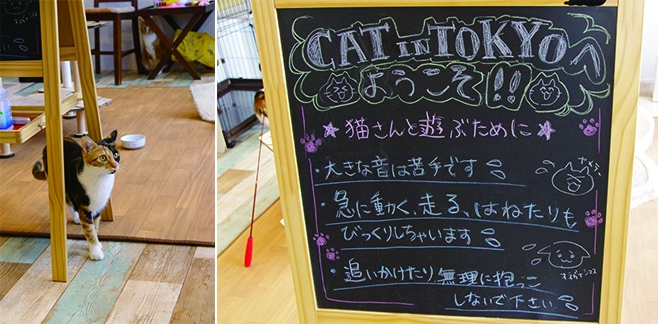 CAT IN TOKYO へ
ようこそ!!
★猫さんと遊ぶために★
・大きな音は苦手です
・急に動く、走る、はねたりも
びっくりしちゃいます
・追いかけたり無理に抱っこ
しないで下さい